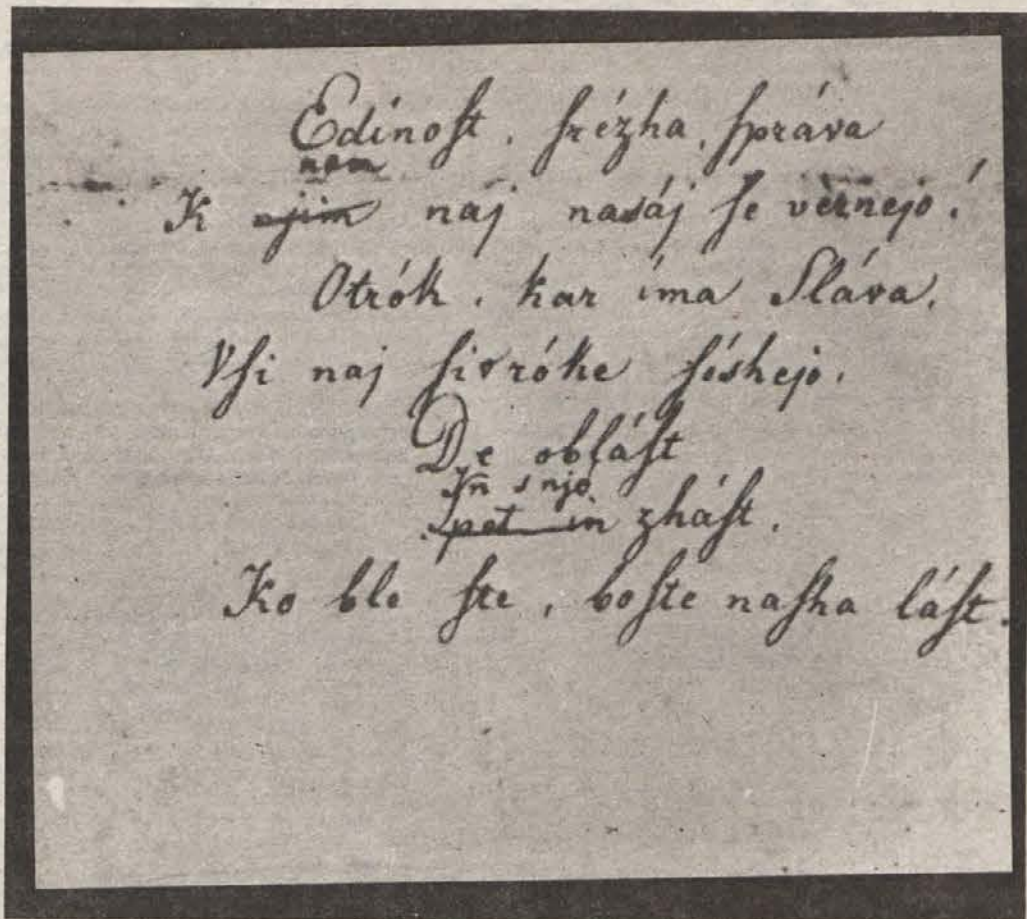 Edínoſt, ſrézha, ſpráva
nam
K ~~njim~~ naj nasáj ſe vèrnejo!
Otrók, kar íma Sláva,
Vſi naj ſi v róke ſéshejo,
De obláſt
In s njo
~~pet in~~ zháſt,
Ko ble ſte, boſte naſha láſt.